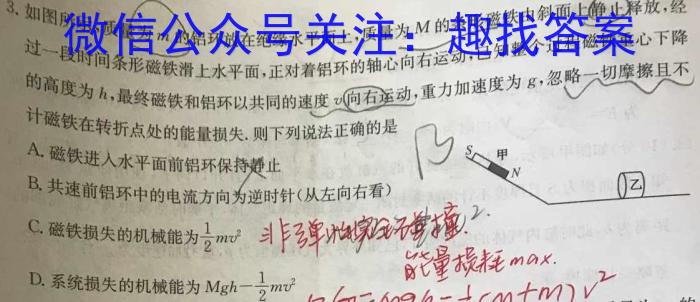 3. 如图所 质量为m的铝环放在绝缘水平面上,质量为M的条形磁铁由斜面上静止释放,经
微信公众号关注:趣找答案
过一段时间条形磁铁滑上水平面,正对着铝环的轴心向右运动,已知整个过程磁铁重心下降
的高度为h,最终磁铁和铝环以共同的速度v向右运动,重力加速度为g,忽略一切摩擦且不
计磁铁在转折点处的能量损失. 则下列说法正确的是
A. 磁铁进入水平面前铝环保持静止
B. 共速前铝环中的电流方向为逆时针(从左向右看)
C. 磁铁损失的机械能为½mv²
D. 系统损失的机械能为Mgh-½mv²
B
S 甲 N
乙
非弹性 碰撞.
能量损耗max.